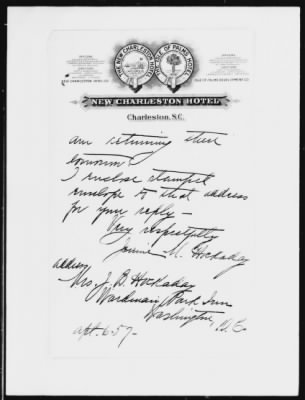 THE NEW CHARLESTON HOTEL
ISLE OF PALMS HOTEL
NEW CHARLESTON HOTEL
Charleston, S.C.
am returning there
tomorrow.
I enclose stamped
envelope to that address
for your reply —
Very respectfully
M. Hockaday
address
Mrs. J. B. Hockaday
Wardman Park Inn
Washington, D.C.
apt. 657-